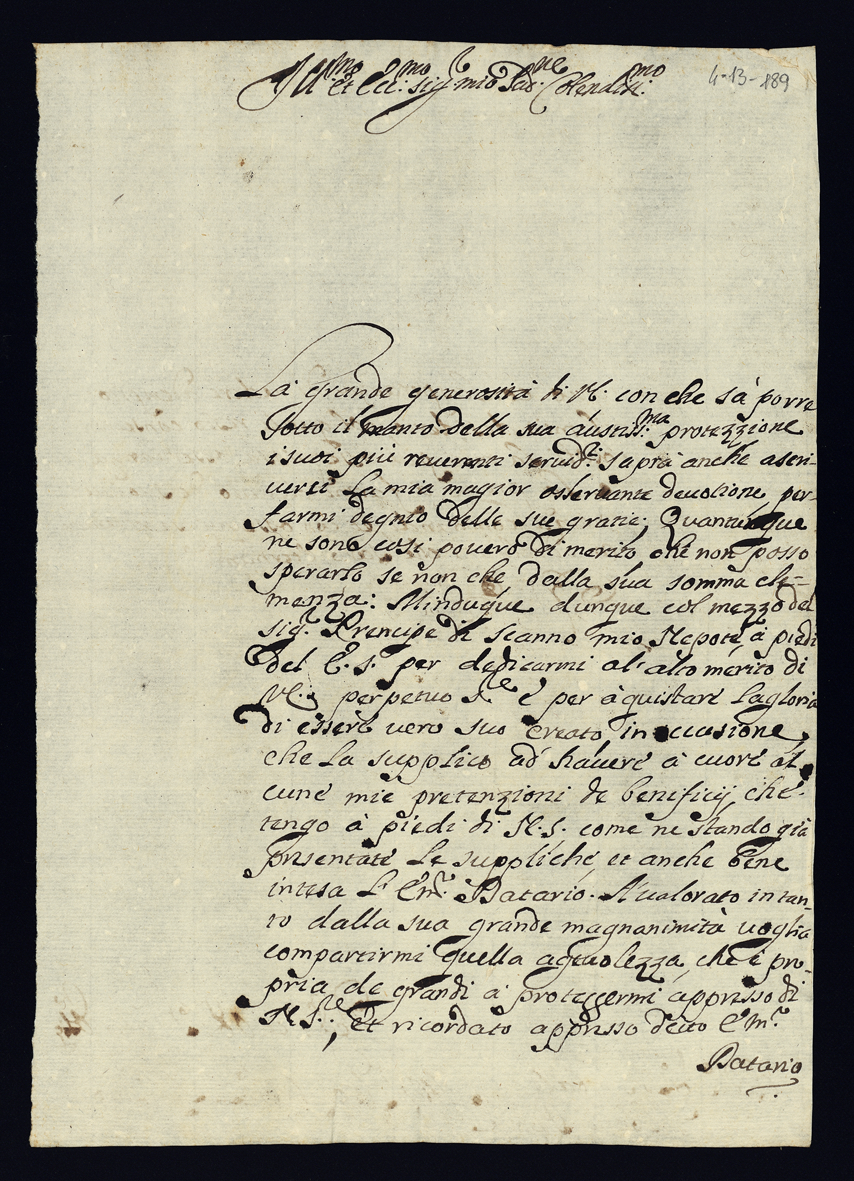 Ill.mo et Ecc.mo Sig.r mio Pad.ne Colendis.mo
4-13-189
La grande generosità di V.E. con che sà porre
sotto il manto della sua austiss.ma protezzione
i suoi più reverenti servid.ri saprà anche ascri-
versi la mia magior osservante devotione, per
farmi degnio delle sue gratie; Quantunque
ne sono così povero di merito, che non posso
sperarlo se non che dalla sua somma cle-
menza: M'induque dunque col mezzo del
sig.r Prencipe di Scanno mio Nepote à piedi
del E.S. per dedicarmi al'alto merito di
V.E. perpetuo è per àquistare la gloria
di essere vero suo creato, in occasione,
che la supplico ad havere à cuore al
cune mie pretenzioni de beneficij che
tengo à piedi di N.S. come ne stando già
presentate le suppliche, et anche bene
intesa l'Em.o Datario. A'valorato intan-
to dalla sua grande magnanimità voglia
compartirmi quella agevolezza, che è pro-
pria de grandi à proteggermi appresso di
N.S.re, et ricordato appresso detto Em.o
Datario